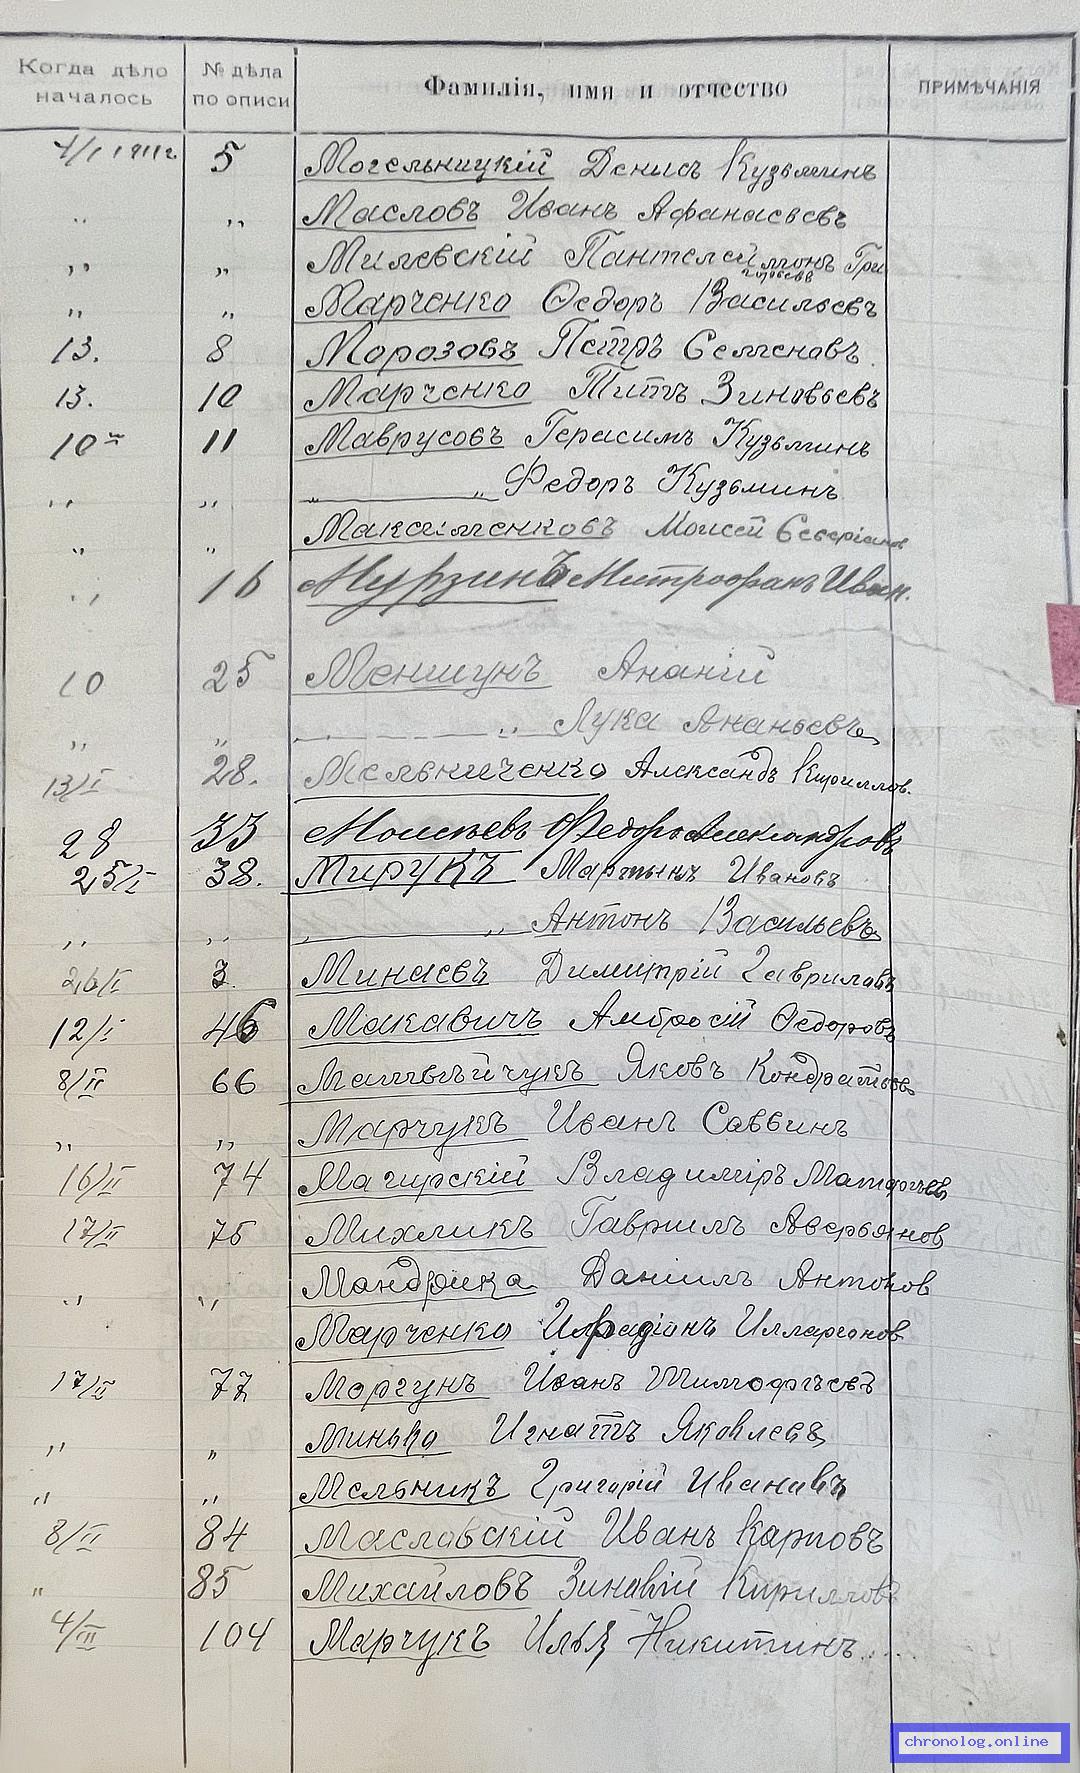 Когда дѣло началось № дѣла по описи Фамилія, имя и отчество ПРИМѢЧАНІЯ
1/I 1911г. 5 Могельницкій Денисъ Кузьминъ
„ „ Масловъ Иванъ Афанасьевъ
„ „ Милевскій Пантелеймонъ Григорьевъ
„ „ Марченко Ѳедоръ Васильевъ
13. 8 Морозовъ Петръ Семеновъ
13. 10 Марченко Титъ Зиновьевъ
10 11 Маврусовъ Герасимъ Кузьминъ
„ „ „ Федоръ Кузьминъ
„ „ Максименковъ Моисей
„ 16 Мурзинъ Митрофанъ Иван.
10 25 Меншунъ Ананій
„ „ „ Лука Ананьевъ
13/I 28. Мельниченко Александъ Кириллов.
28 33 Моисѣевъ Федоръ Александровъ
25/I 38. Мирукъ Мартынъ Ивановъ
„ „ „ Антонъ Васильевъ
26/I 3. Минаевъ Димитрій Гавриловъ
12/I 46 Макавичъ Амбросій Ѳедоровъ
8/II 66 Матвѣйчукъ Яковъ Кондратьевъ
„ „ Марчукъ Иванъ Саввинъ
16/II 74 Магирскій Владиміръ Матфѣев
17/II 75 Михликъ Гавриилъ Аверьянов
„ „ Мандрика Даніилъ Антонов
Марченко Илларіонов
17/II 77 Моргунъ Иванъ Тимофѣевъ
„ „ Минько Игнатъ Яковлевъ
„ „ Мельникъ Григорій Ивановъ
8/II 84 Масловскій Иванъ Карповъ
„ 85 Михайловъ Зиновій Кирилловъ
4/III 104 Марчукъ Илья Никитинъ
chronolog.online